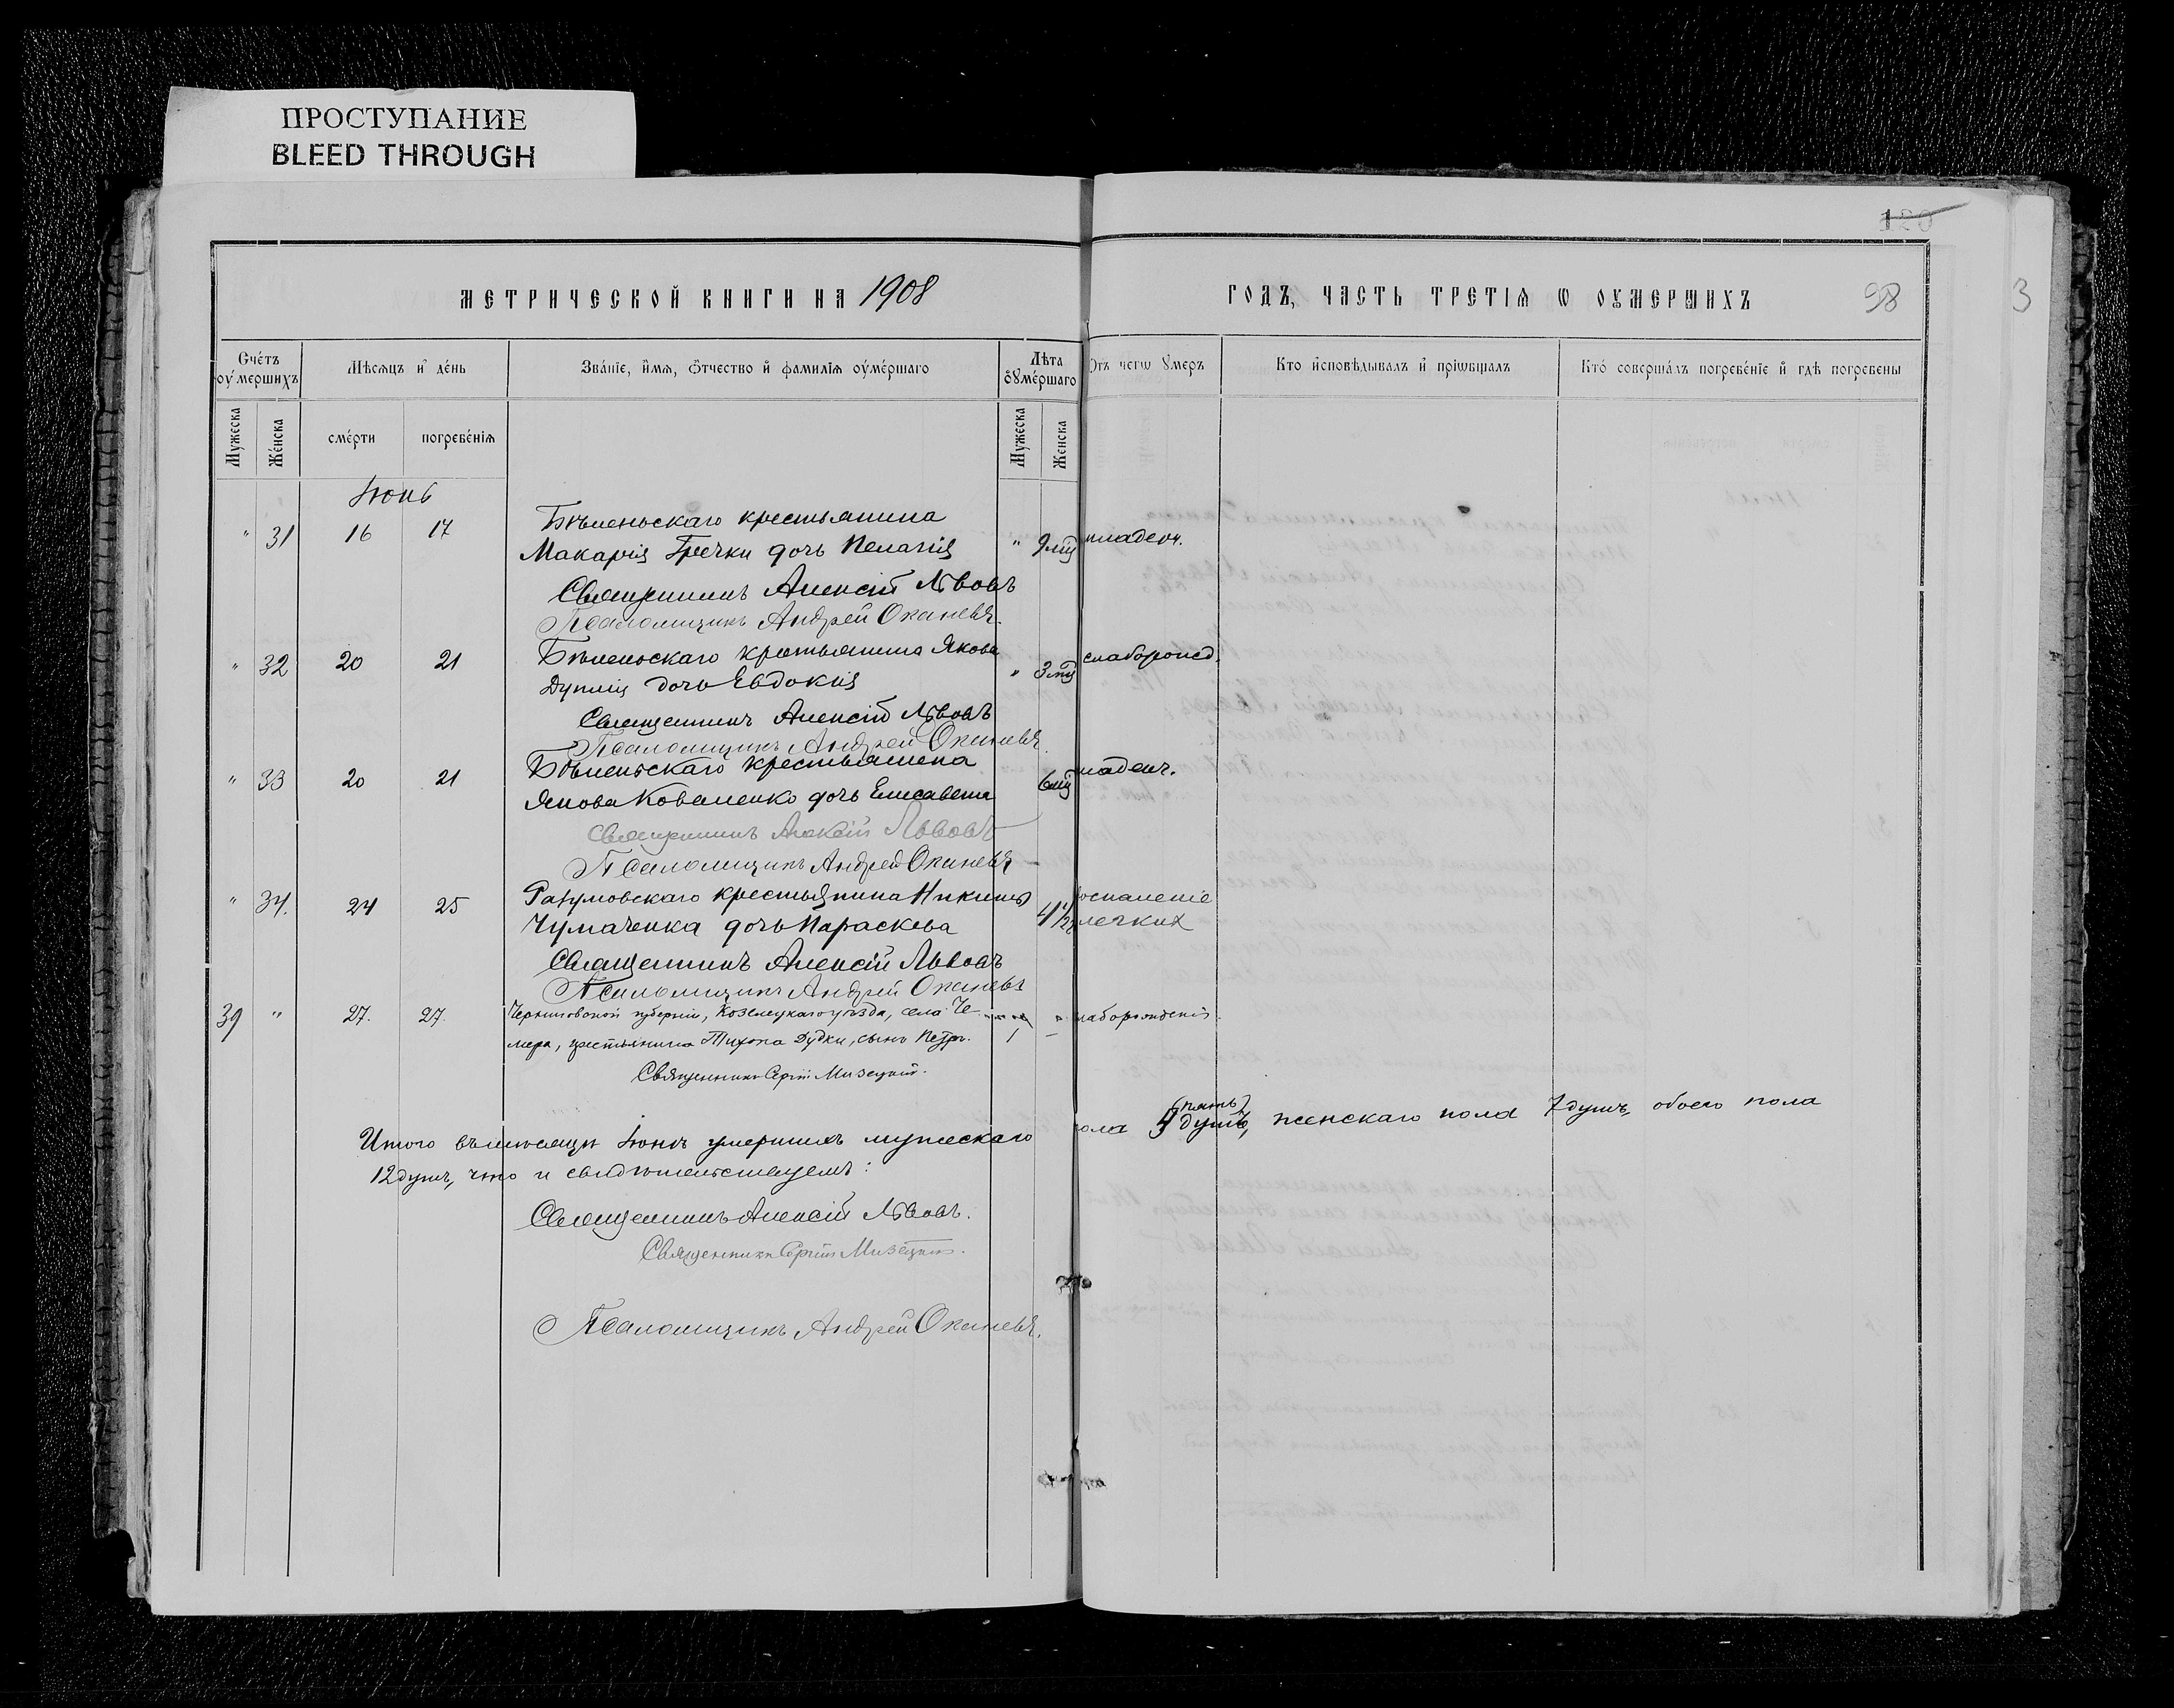 ПРОСТУПАНИЕ
BLEED THROUGH
120
МЕТРИЧЕСКОЙ КНИГИ НА 1908
ГОДЪ, ЧАСТЬ ТРЕТІЯ Ѡ ОУМЕРШИХЪ 98
3
Счетъ оумершихъ
Мѣсяцъ и день
Званіе, имя, ѿчество и фамилія оумершаго
Лѣта оумершаго
Отъ чегѡ умеръ
Кто исповѣдывалъ и пріѡбщалъ
Кто совершалъ погребеніе и гдѣ погребены
Мужеска
Женска
смерти
погребенія
Мужеска
Женска
Іюнь
" 31 16 17 Бѣленьскаго крестьянина
Макарія Гречки дочь Пелагія " 9 мц младенч.
Священникъ Алексій Львовъ
Псаломщикъ Андрей Оканевъ
" 32 20 21 Бѣленьскаго крестьянина Якова
дочь Евдокія " 3 мц слаборожд.
Священникъ Алексій Львовъ
Псаломщикъ Андрей Оканевъ
" 33 20 21 Бѣленьскаго крестьянина
Якова Коваленко дочь Елисавета 6 мц младенч.
Священникъ Алексій Львовъ
Псаломщикъ Андрей Оканевъ
" 34. 24 25 Разумовскаго крестьянина Никиты воспаленіе
Чумаченка дочь Параскева 4 1/2 легких
Священникъ Алексій Львовъ
Псаломщикъ Андрей Оканевъ
39 " 27. 27. Черниговской губерніи, Козелецкаго уѣзда, села Че- " слаборожденія
мера, крестьянина Тихона Дудки, сынъ Петръ.
Священникъ Сергій Мизецкій.
Итого въ мѣсяцѣ Іюнѣ умершихъ мужескаго пола 5 (пять) душъ, женскаго пола 7 душъ, обоего пола
12 душъ, что и свидѣтельствуемъ:
Священникъ Алексій Львовъ.
Священникъ Сергій Мизецкій.
Псаломщикъ Андрей Оканевъ.